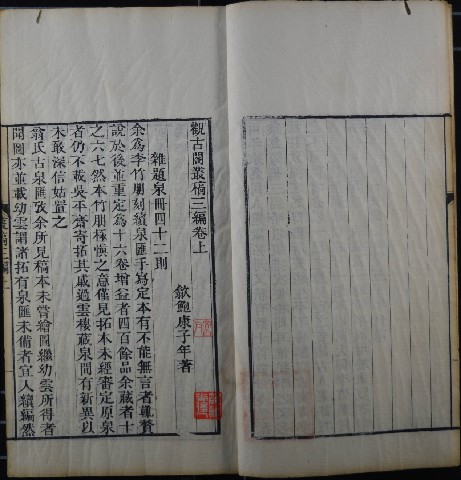 觀古閣叢稿三編卷上
歙鮑康子年著
雜題泉冊四十二則
余為李竹朋刻續泉匯手寫定本有不能無言者輒贅
說於後並重定為十六卷增益者四百餘品余藏者十
之六七然本竹朋極慎之意僅見拓本未經審定原泉
者仍不載吳平齋寄拓其戚過雲樓藏泉閒有新異以
未敢深信姑置之
翁氏古泉匯攷余所見稿本未嘗繪圖繼幼雲所得者
閒圖亦並載幼雲謂諸拓有泉匯未備者宜入續編然